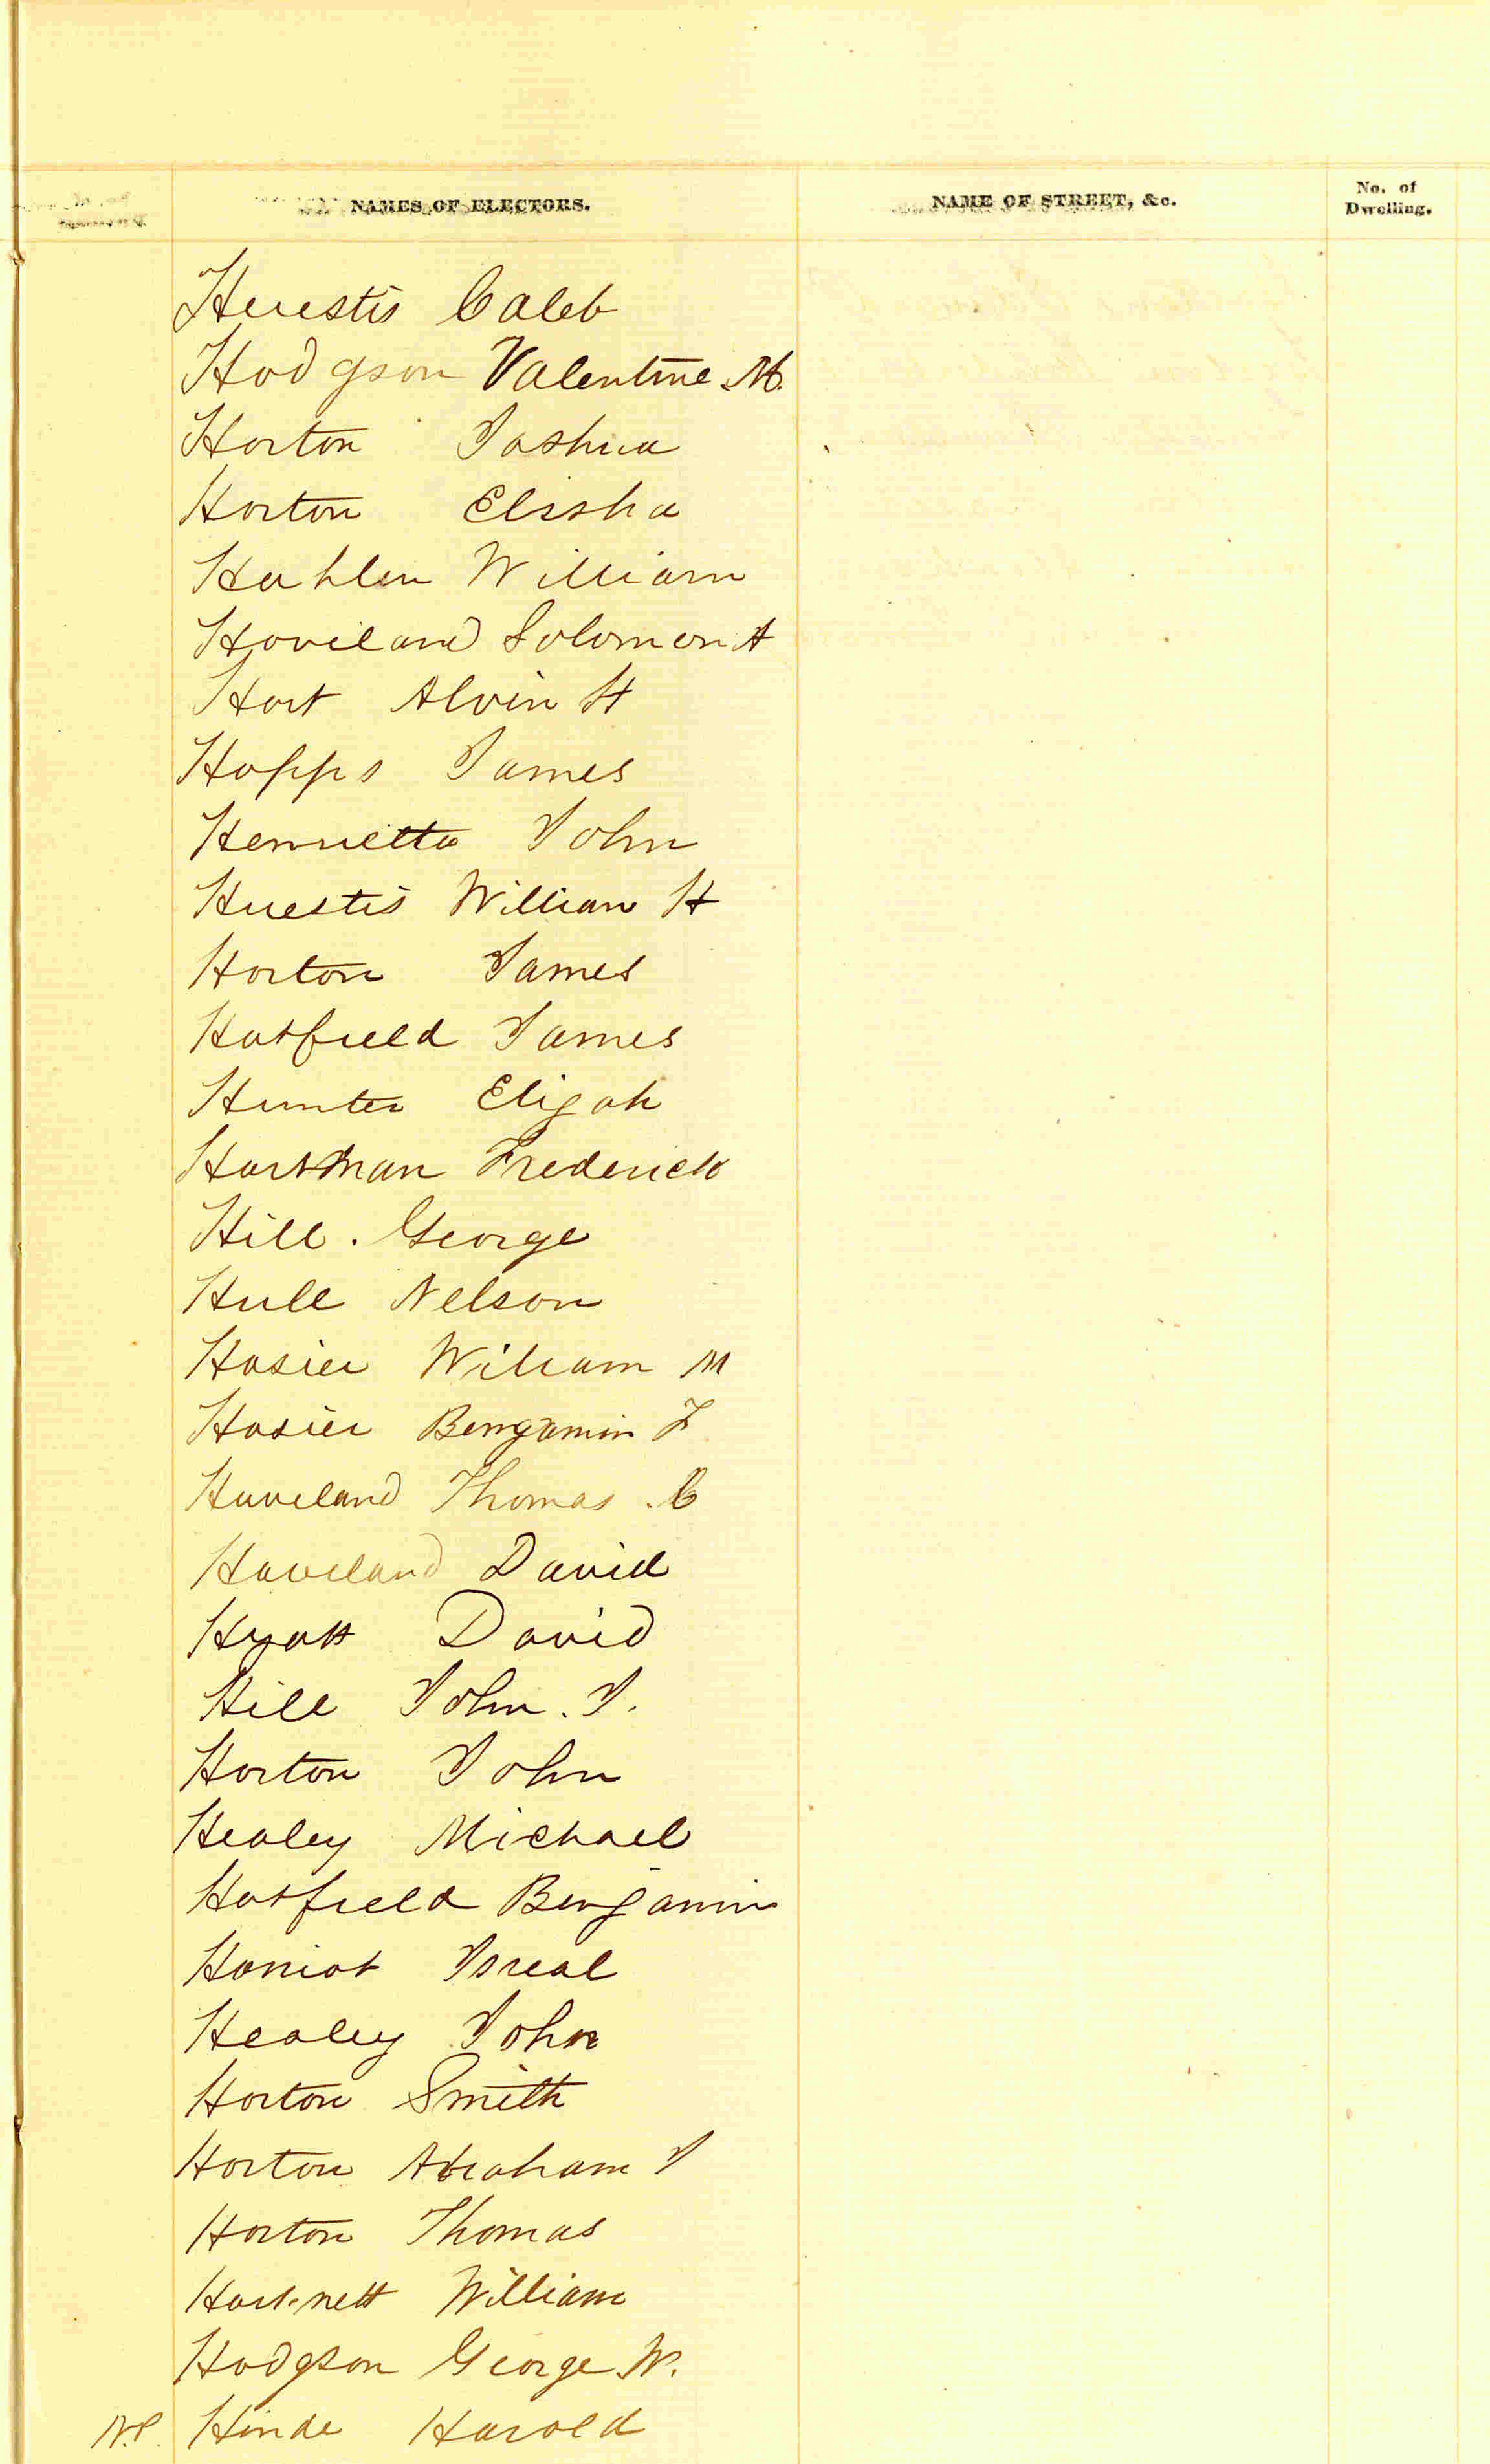 NAMES OF ELECTORS.
NAME OF STREET, &c.
No. of
Dwelling.
Huestis Caleb
Hodgson Valentine M.
Horton Joshua
Horton Elisha
Hahlen William
Haviland Solomon A
Hart Alvin H
Hopps James
Henrietta John
Huestis William H
Horton James
Hatfield James
Hunter Elijah
Hartman Frederick
Hill. George
Hull Nelson
Hosier William M
Hosier Benjamin F
Haveland Thomas C
Haveland David
Hyatt David
Hill John. J.
Horton John
Healey Michael
Hatfield Benjamin
Haniot Isreal
Healey John
Horton Smith
Horton Abraham J
Horton Thomas
Hartnett William
Hodgson George W.
N.P. Hinde Harold